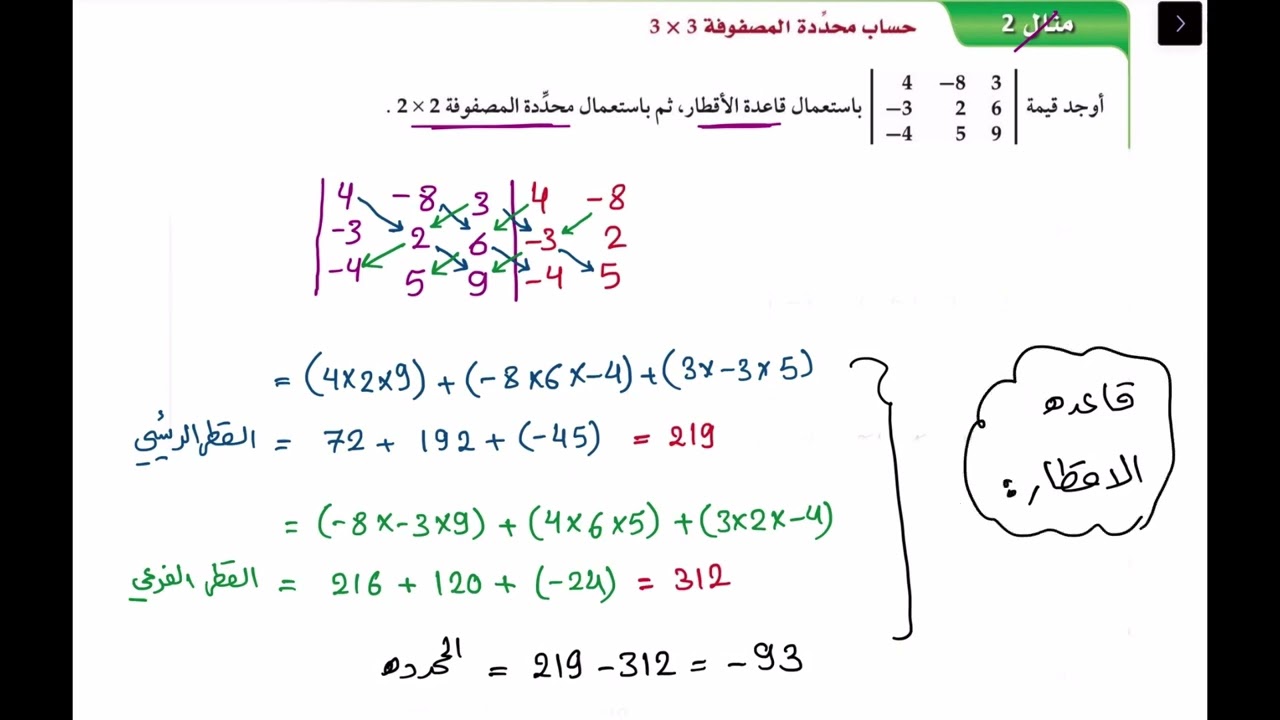 مثال 2
حساب محدِّدة المصفوفة 3 × 3
أوجد قيمة | 4 −8 3 | باستعمال قاعدة الأقطار، ثم باستعمال محدِّدة المصفوفة 2 × 2 .
−3 2 6
−4 5 9
4 -8 3 | 4 -8
-3 2 6 | -3 2
-4 5 9 | -4 5
= (4×2×9) + (-8×6×-4) + (3×-3×5)
القطر الرئيسي = 72 + 192 + (-45) = 219
= (-8×-3×9) + (4×6×5) + (3×2×-4)
القطر الفرعي = 216 + 120 + (-24) = 312
المحدده = 219 - 312 = -93
قاعده
الاقطار :